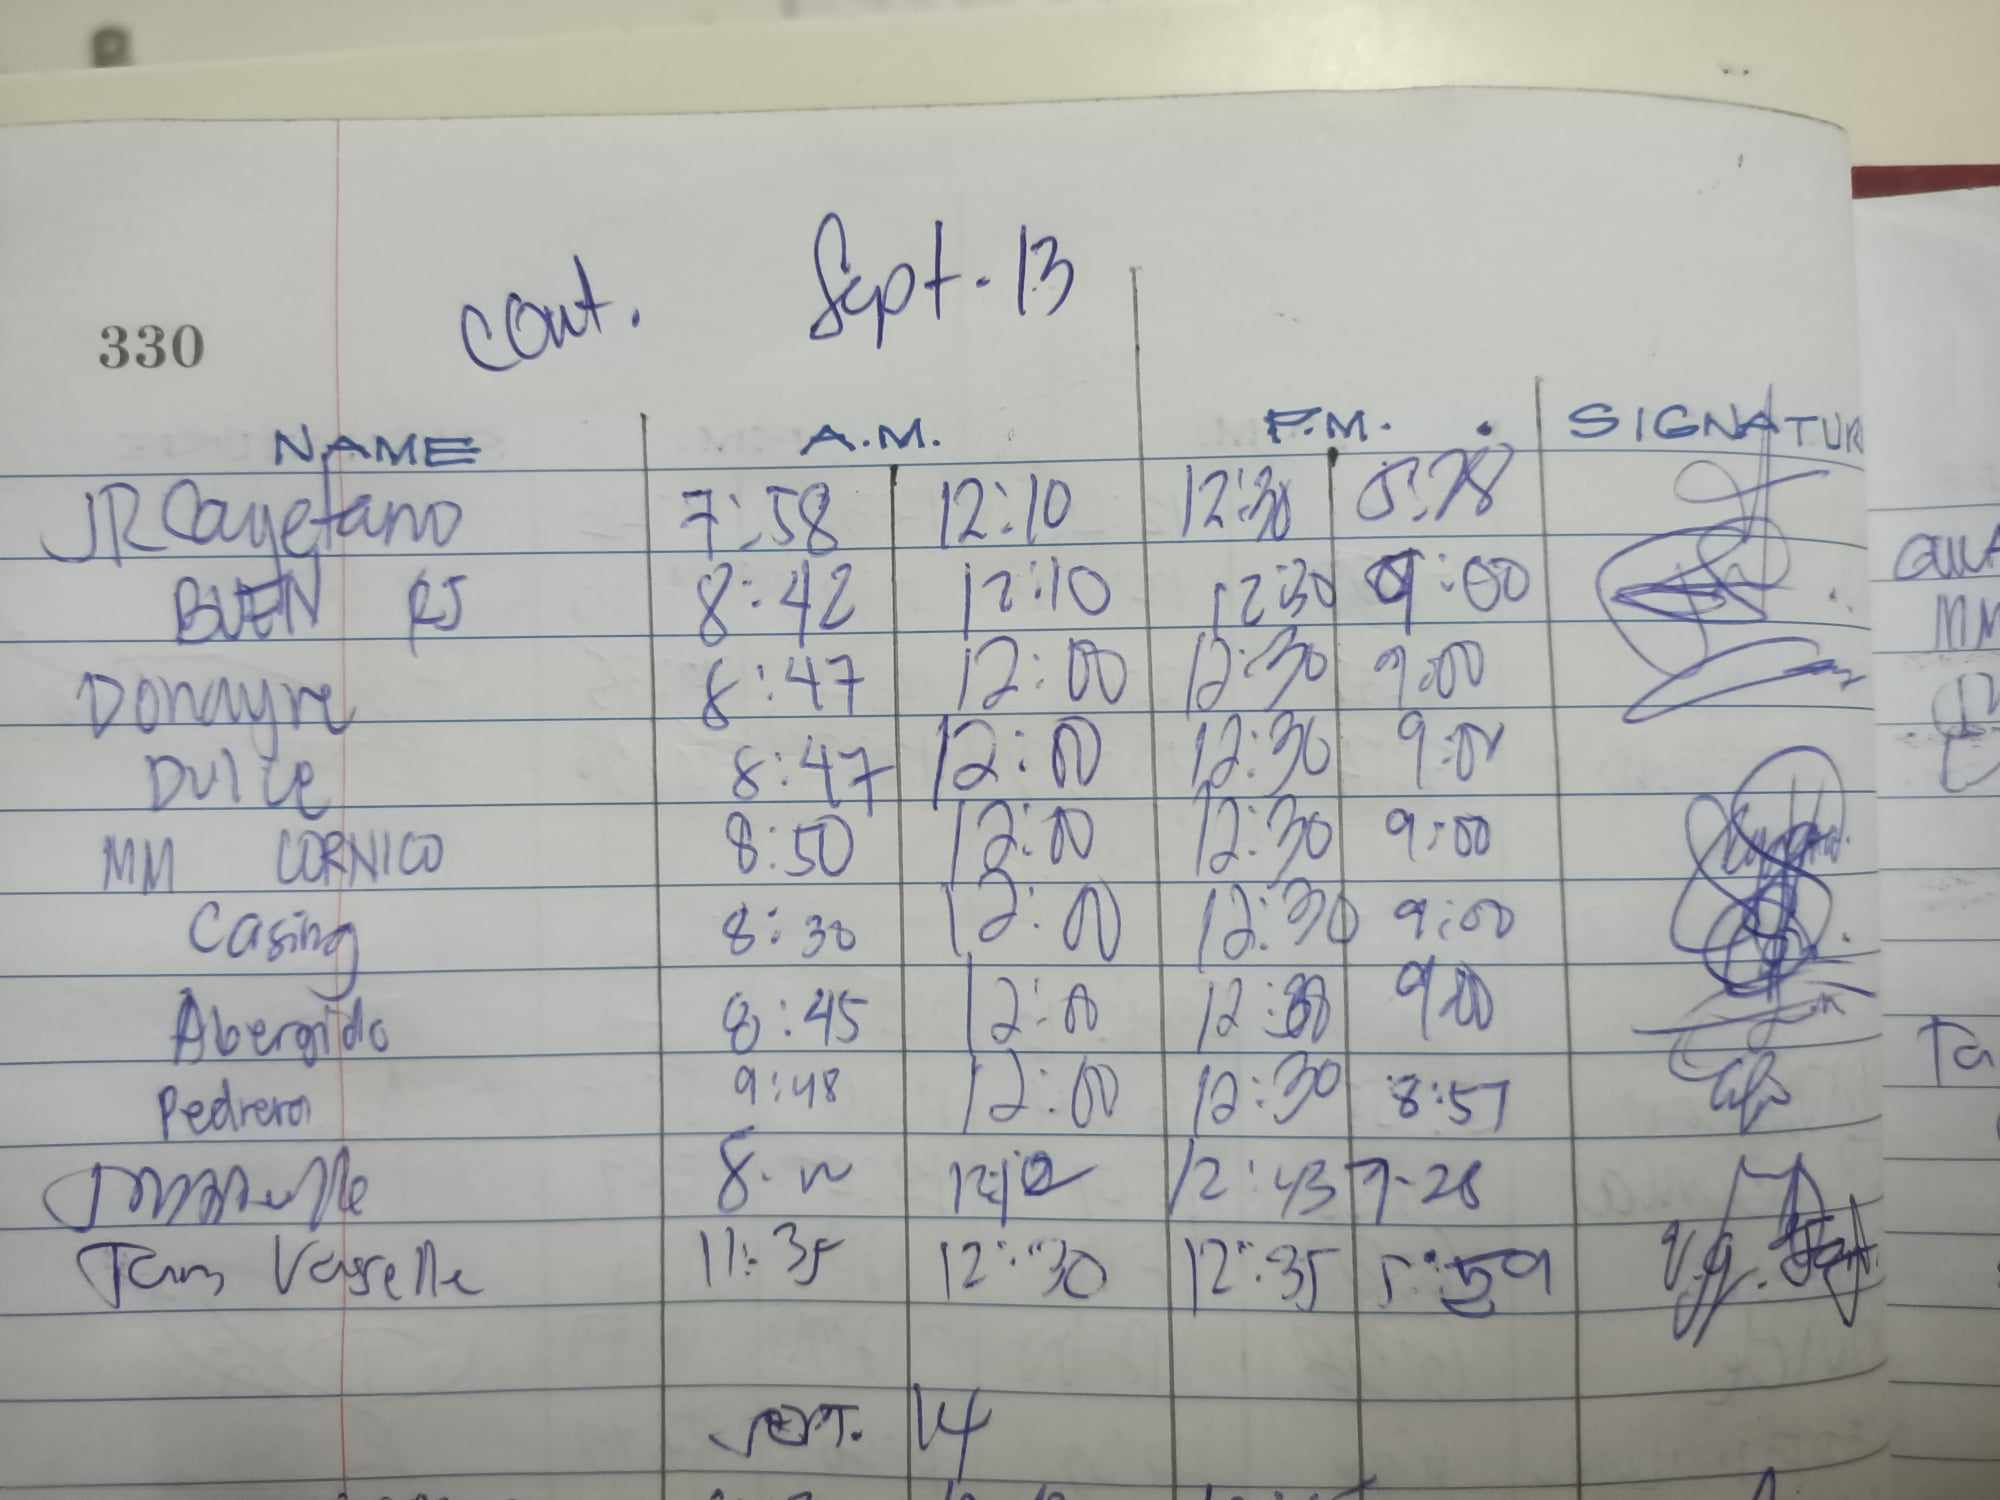 cont. Sept. 13
330
NAME A.M. P.M. SIGNATUR
JR Cayetano 7:58 12:10 12:30
BUEN RJ 8:42 12:10 12:30 9:00
Donayre 8:47 12:00 12:30 9:00
Dulce 8:47 12:00 12:30 9:00
MM CORNICO 8:50 12:00 12:30 9:00
Casing 8:30 12:00 12:30 9:00
Abergido 8:45 12:00 12:30 9:00
Pedrera 9:48 12:00 12:30 8:57
12:43 7-28
Tam Vasselle 11:35 12:30 12:35 5:59
SEPT. 14
MM
Ta